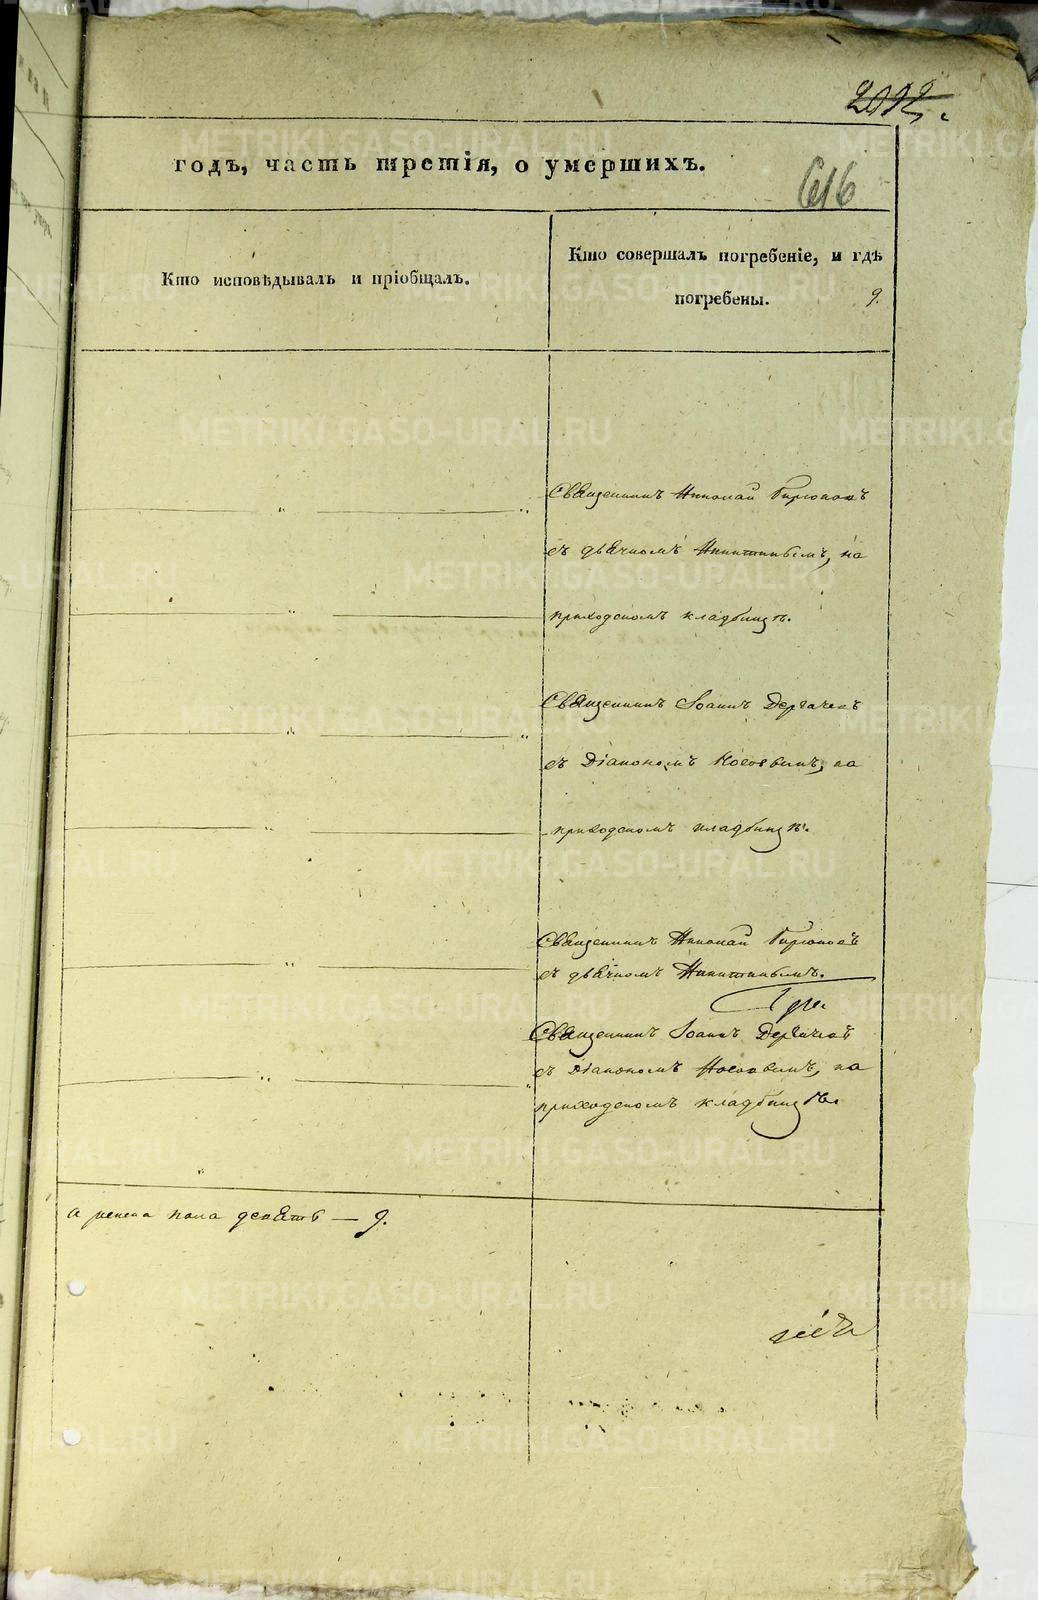 2092.
годъ, часть третія, о умершихъ.
616
Кто исповѣдывалъ и пріобщалъ.
Кто совершалъ погребеніе, и гдѣ
погребены.
9.
Священникъ Николай Бирюковъ
съ дьячкомъ Никитинымъ, на
приходскомъ кладбищѣ.
Священникъ Іоаннъ Дергачевъ
съ Діакономъ Носовымъ, на
приходскомъ кладбищѣ.
Священникъ Николай Бирюковъ
съ дьячкомъ Никитинымъ.
Священникъ Іоаннъ Дергачевъ
съ Діакономъ Носовымъ, на
приходскомъ кладбищѣ.
а женска пола девять — 9.
METRIKI.GASO-URAL.RU